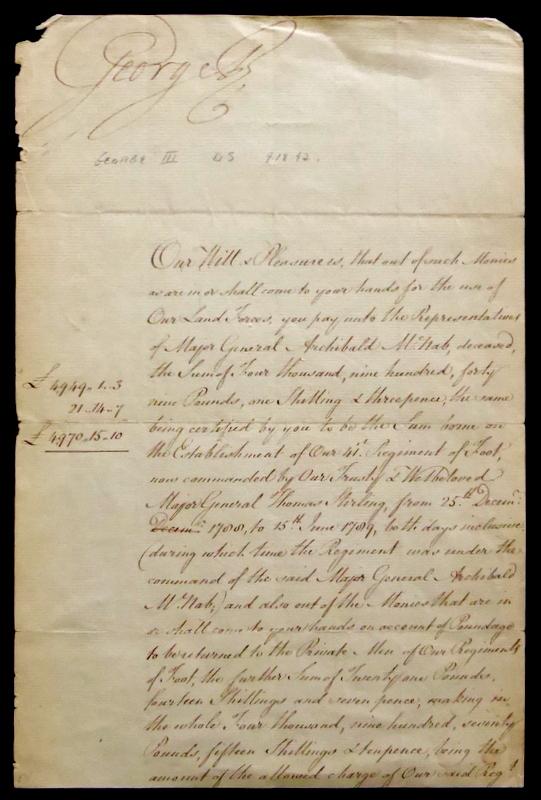 George R
GEORGE III DS
Our Will & Pleasure is, that out of such Monies
as are in or shall come to your hands for the use of
Our Land Forces, you pay unto the Representatives
of Major General Archibald Mc.Nab, deceased,
the Sum of Four thousand, nine hundred, forty
nine Pounds, one Shilling & threepence, the same
being certified by you to be the Sum borne on
the Establishment of Our 41st. Regiment of Foot,
now commanded by Our Trusty & Welbeloved
Major General Thomas Stirling, from 25.th Decem.r
Decem.r 1788, to 15.th June 1789, both days inclusive
(during which time the Regiment was under the
command of the said Major General Archibald
Mc.Nab,) and also out of the Monies that are in
or shall come to your hands on account of Poundage
to be returned to the Private Men of Our Regiments
of Foot, the further Sum of Twenty one Pounds,
fourteen Shillings and seven pence, making in
the whole Four thousand, nine hundred, seventy
Pounds, fifteen Shillings & tenpence, being the
amount of the allowed charge of Our said Reg.t
£4949-1-3
21-14-7
£4970-15-10